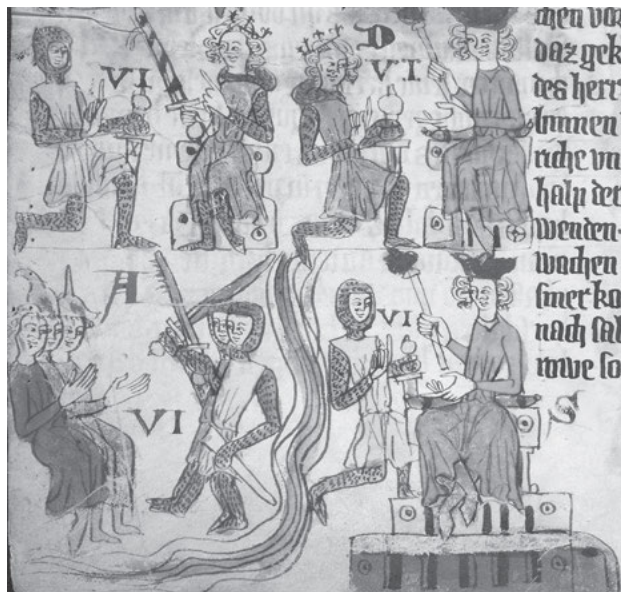 VI
D
VI
A
VI
VI
S
daz gek
des herr
binnen
riche vn
halp der
wenden.
wochen
siner ko
nach sal
rowe so